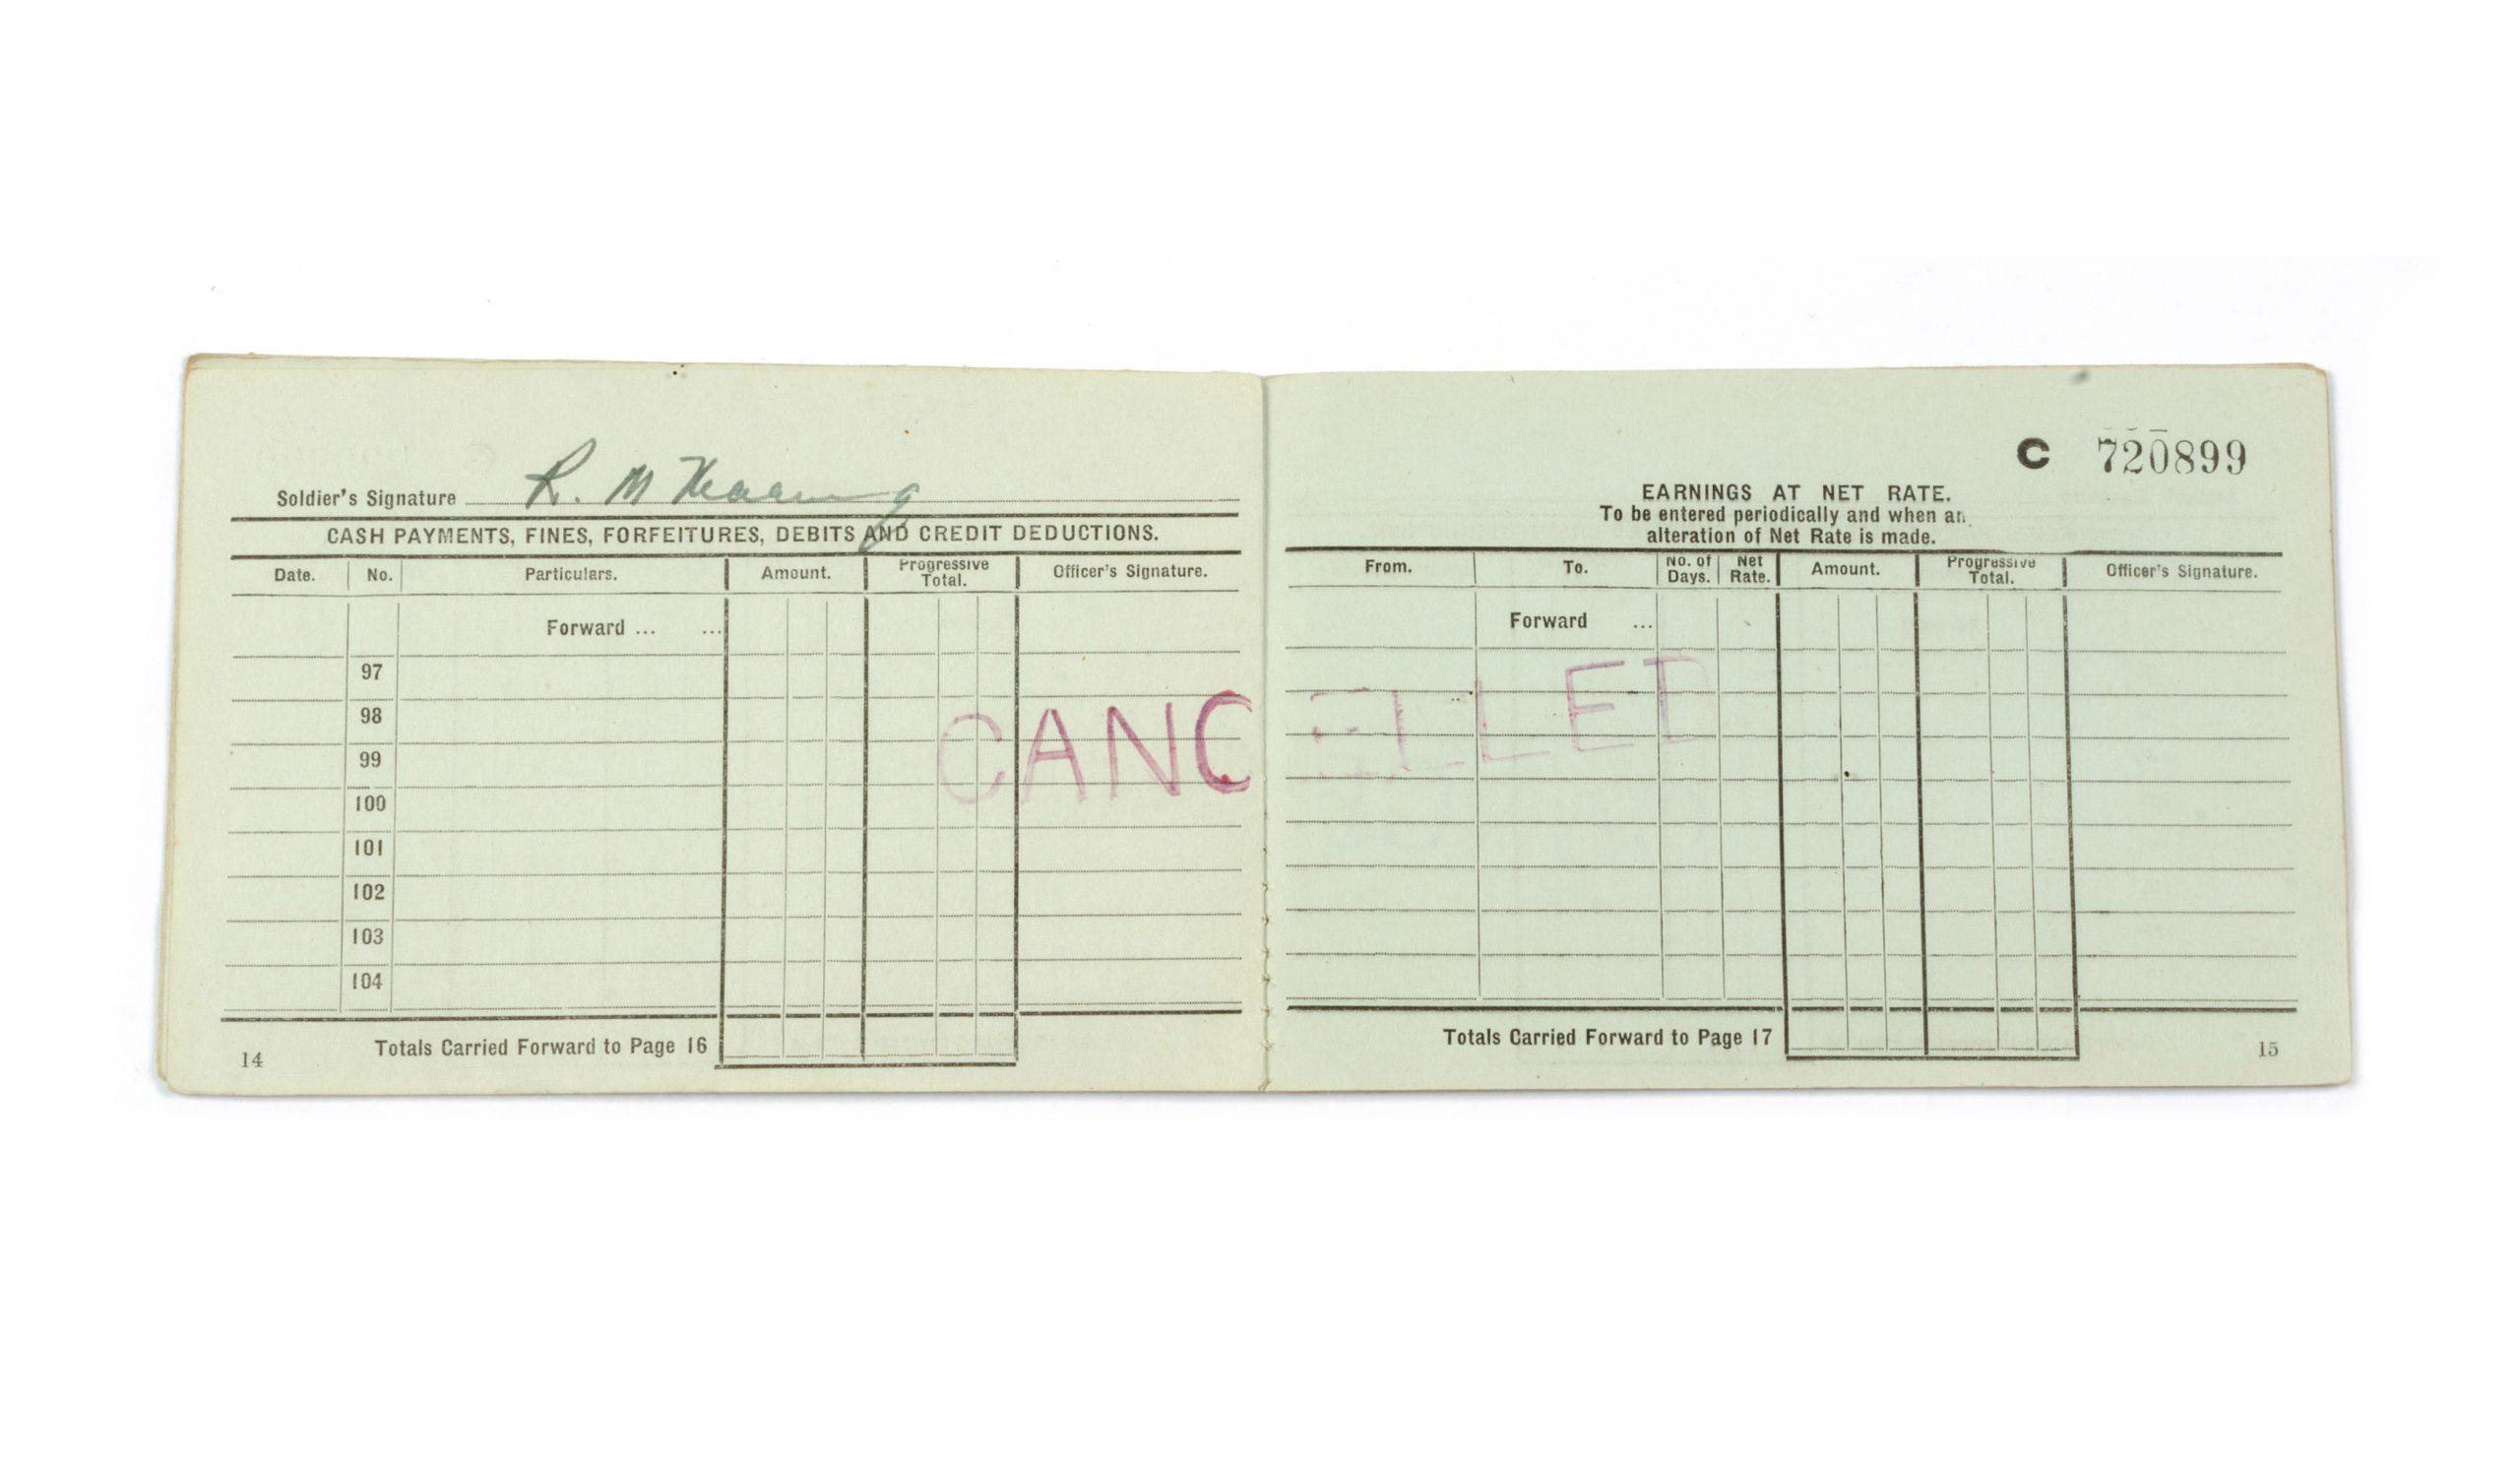 Soldier's Signature R. M
CASH PAYMENTS, FINES, FORFEITURES, DEBITS AND CREDIT DEDUCTIONS.
Date. No. Particulars. Amount. Progressive Total. Officer's Signature.
Forward ... ...
97
98
99
100
101
102
103
104
Totals Carried Forward to Page 16
14
CANCELLED
C 720899
EARNINGS AT NET RATE.
To be entered periodically and when an
alteration of Net Rate is made.
From. To. No. of Days. Net Rate. Amount. Progressive Total. Officer's Signature.
Forward ...
Totals Carried Forward to Page 17
15